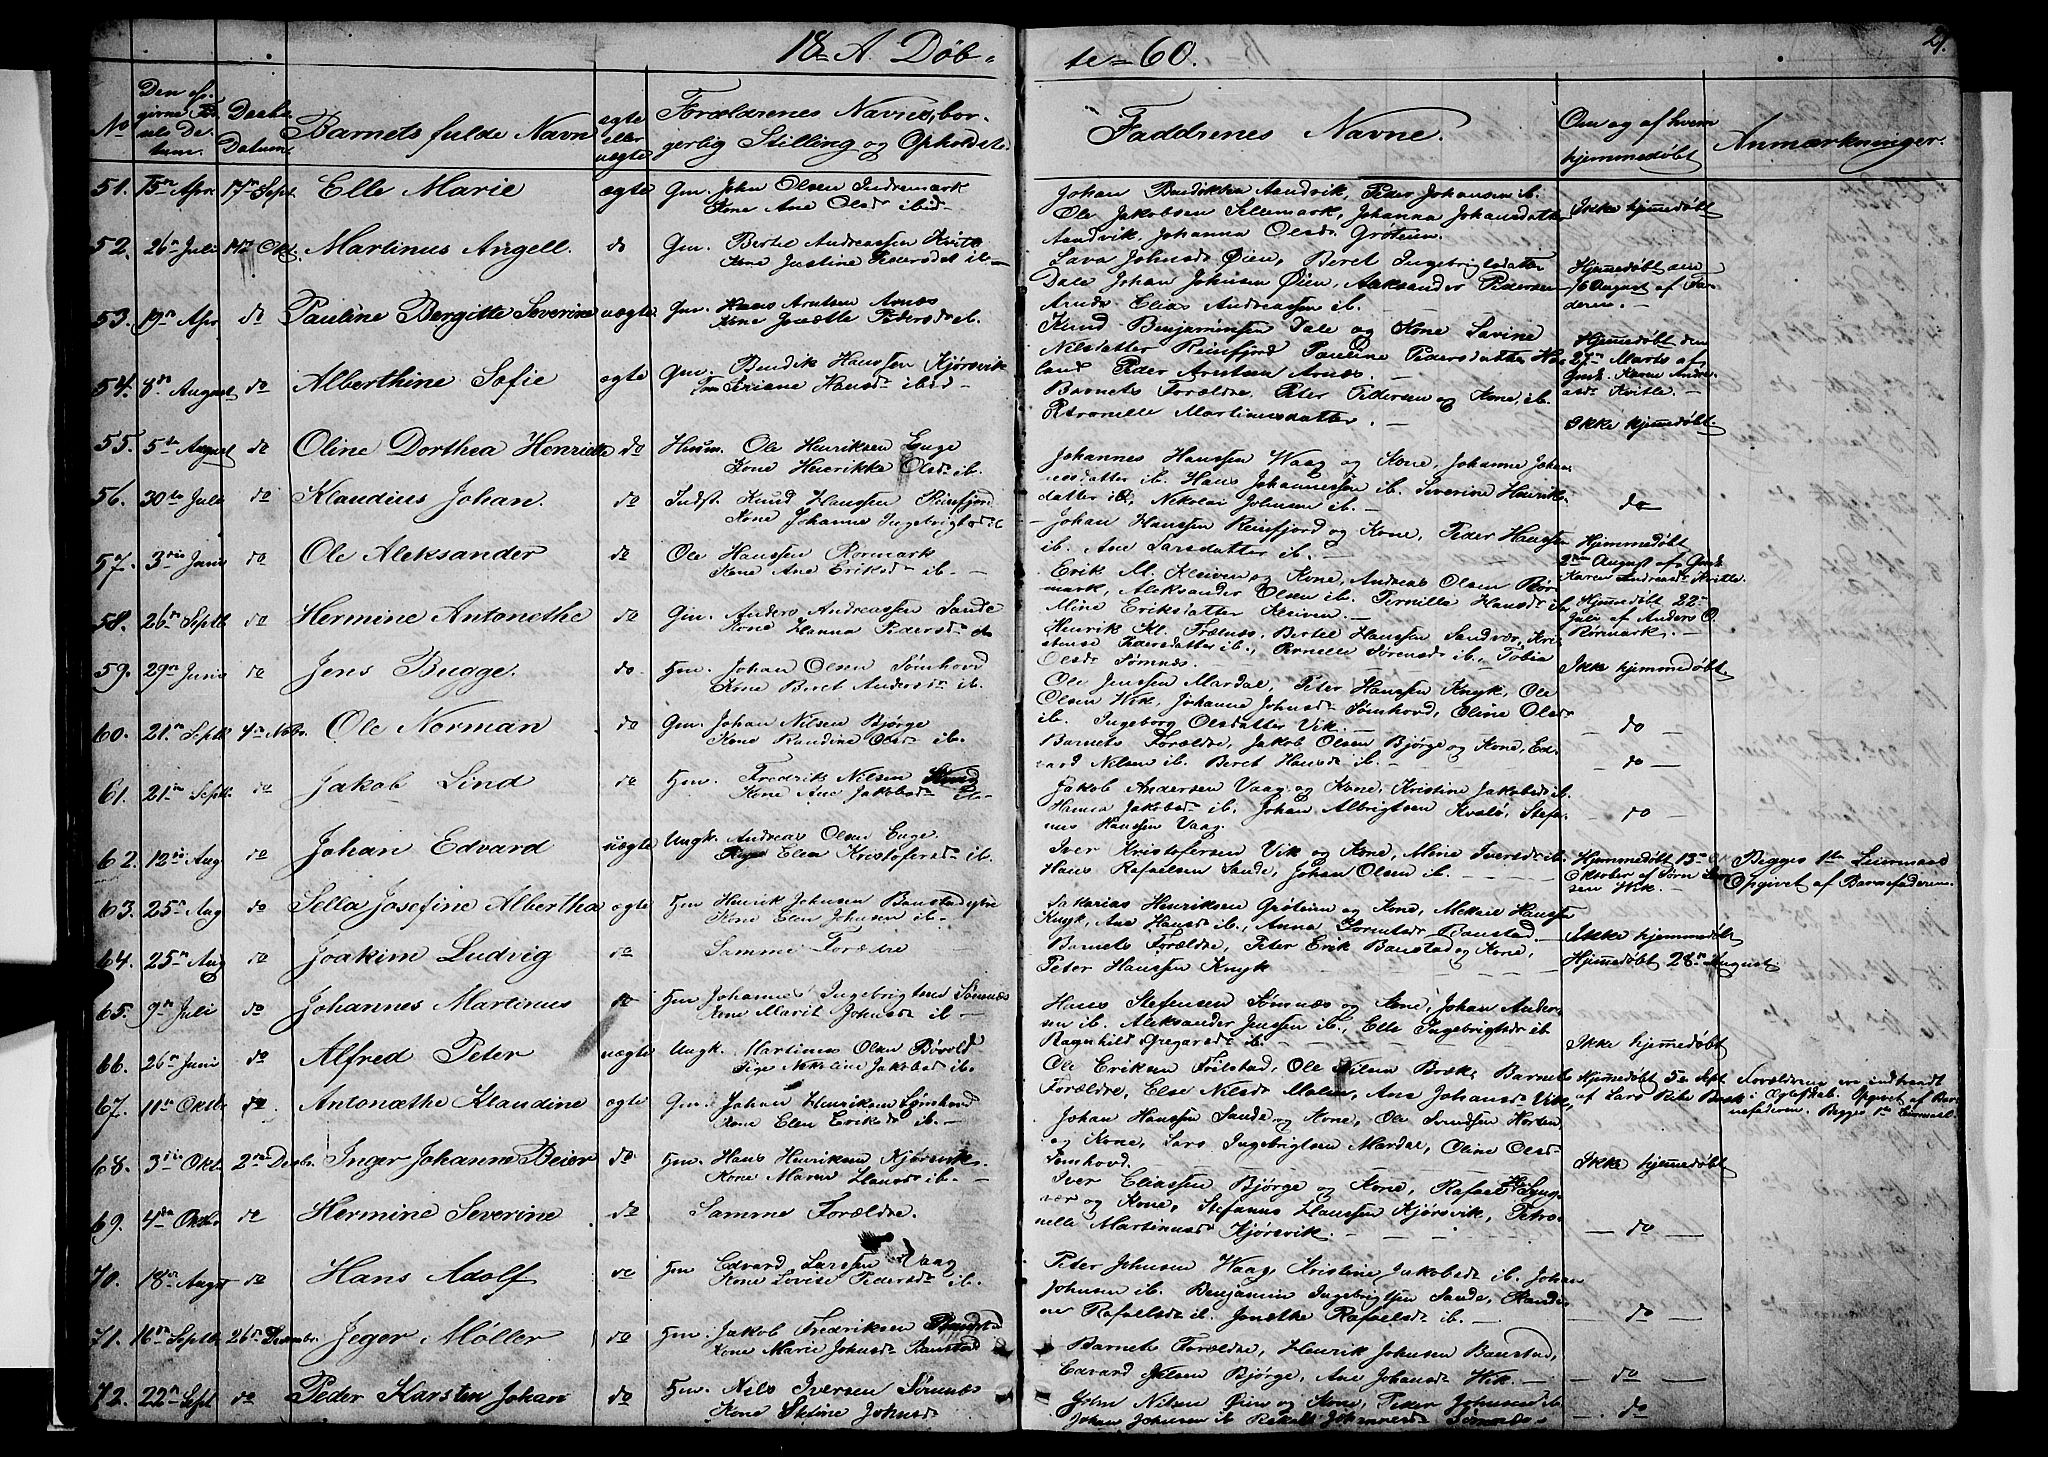 18 A. Døb-
te 60.
29.
No
Den op-
givne Fø-
sels Da-
tum.
Daabs
Datum
Barnets fulde Navn
ægte
eller
uægte
Forældrenes Navne, bor-
gerlig Stilling og Opholdsted
Faddrenes Navne.
Om og af hvem
hjemmedøbt
Anmærkninger.
51. 15de Apr. 17de Sept. Elle Marie ægte Gm. John Olsen Indremark
Kone Ane Olsdr ibid
Johan Bendiksen Aandvik, Peder Johansen ib.
Ole Jakobsen Sellemark, Johanna Johansdatter
Aandvik Johanna Olsdr Grøteim.
Ikke hjemmedøbt
52. 26de Juli 14de Okt. Martinus Angell. do Gm. Bertel Andreassen Kvitle
Kone Justine Pedersdtr ib
Lava Johnsdr Øien, Beret Ingebrigtsdatter
Dale Johan Johnsen Øien, Aleksander Pedersen
Elias Andreassen ib.
Hjemmedøbt den
16 August af Fa-
deren.
53. 19de Apr do Pauline Bergitte Severine uægte Gm. Hans Arntsen Arnæs
Kone Jonette Pedersdr ib.
Knud Benjaminsen Dale og Kone Savine
Nilsdatter Reinfjord Pauline Pedersdatter
land Peder Arntsen Arnæs.
Hjemmedøbt den
27de Marts af
Gmk. Karen Andre-
asdr Kvitle.
54. 8de August do Alberthine Sofie ægte Gm. Bendik Hanssen Kjørsvik
Kone Hansdr ibid
Barnets Forældre, Peter Pedersen og Kone, ib.
Petronelle Martinusdatter.
Ikke hjemmedøbt.
55. 5te August do Oline Dorthea Henriette do Husm. Ole Henriksen Enge
Kone Henrikke Olsdr ib.
Johannes Hanssen Waag og Kone, Johanne Johan-
nesdatter ib. Hans Johannessen ib. Severine Henriks-
datter ib, Nikolai Johnsen ib.
do
56. 30te Juli do Klaudius Johan. do Indst. Knud Hanssen Reinfjord
Kone Johanna Ingebrigtsdr ib
Johan Hanssen Reinfjord og Kone, Peder Hanssen
ib. Ane Larsdatter ib.
Hjemmedøbt
2den August af Gmk.
Karen Andreasdr Kvitle.
57. 3die Juni do Ole Aleksander do Ole Hanssen Rørmark
Kone Ane Eriksdr ib.
Erik M. Kleiven og Kone, Andreas Olsen Rør-
mark, Aleksander Olsen ib. Pernille Hansdr ib,
Mine Eriksdatter Kleiven.
Hjemmedøbt 22de
Juli af Anders O.
Rørmark.
58. 26de Septb do Hermine Antonethe do Gm. Anders Andreassen Sande
Kone Hanna Pedersdr do
Henrik Kl. Trælnæs, Bertel Hanssen Sandvær, Kri-
stense Pedersdatter ib., Pernelle Sørensdr ib., Tobia
Olsdr Sømnæs.
Ikke hjemmedøbt.
59. 29de Juni do Jens Bugge. do. Gm. Johan Olsen Sømhovd
Kone Beret Andersdr ib.
Ole Jenssen Mardal, Peter Hanssen Knyk, Ole
Olsen Wik, Johanna Johnsdr Sømhovd, Oline Olsdr
ib. Ingeborg Olsdatter Vik.
do
60. 21de Septb 4de Nobr. Ole Norman do Gm. Johan Nilsen Bjørge
Kone Randine Olsdr ib.
Barnets Forældre, Jakob Olsen Bjørge og Kone, Ed-
vard Nilsen ib. Beret Hansdr ib.
do
61. 21de Septb. do Jakob Lind do Gm. Fredrik Nilsen
Kone Ane Jakobsdr ib
Jakob Andersen Vaag og Kone, Kristine Jakobsdr ib.
Hanna Jakobsdr ib. Johan Albrigtsen Kvaløi, Stefa-
nus Hanssen Vaag.
do
62. 12te Aug do Johan Edvard uægte Ungk. Andreas Olsen Enge.
Pige Elen Kristofersdr ib.
Iver Kristofersen Vik og Kone, Mine Iversdr ib.
Hans Rafaelsen Sande, Johan Olsen ib.
Hjemmedøbt 13de
Oktober af Jørn
sen Wik.
Begges 1ste Leiermaal
Opgivet af Barnefaderen.
63. 25de Aug do Sella Josefine Albertha ægte Gm Henrik Johnsen Baustad
Kone Elen Johnsen ib.
Sakarias Henriksen Grøteim og Kone, Mekail Hanssen
Knyk, Ane Hansdr ib., Anna Baustad.
Ikke hjemmedøbt
64. 25de Aug do Joakim Ludvig do Samme Forældre
Barnets Forældre, Peter Erik Baustad og Kone,
Peter Hanssen Knyk
Hjemmedøbt 28de August
65. 9de Juli do Johannes Martinus do Gm Johannes Ingebrigtsen Sømnæs
Kone Marit Johnsdr ib
Hans Stefensen Sømnæs og Kone, Johan Ander-
sen ib. Aleksander Jenssen ib., Elle Ingebrigtsdr ib.
Ragnhild Gregarsdr ib.
Ikke hjemmedøbt
66. 26de Juni do Alfred Peter uægte Ungk. Martinus Olsen Bøvold
Pige Nekoline Jakobsdr ib.
Ole Eriksen Frilstad, Ole Nilsen Bræk, Barnets
Forældre, Else Nilsdr Moten, Ane Johansdr Vik,
Hjemmedøbt 5te Sept
af Lars
Forældrene ere indtraadt
i Ægteskab. Opgivet af Bar-
nefaderen. Begges 1ste Leiermaal.
67. 11te Oktbr do. Antonæthe Klaudine ægte Gm. Johan Henriksen Sømhovd
Kone Elen Eriksdr ib.
Johan Hanssen Sande og Kone, Ole Svendsen Horten
og Kone, Lars Ingebrigtsen Mardal, Oline Olsdr
Sømhovd.
Ikke hjemmedøbt
68. 3die Okt. 2den Decbr. Inger Johanne Beier do Gm. Hans Henriksen Kjørsvik.
Kone Maren Hansdr ib.
Iver Eliassen Bjørge og Kone, Rafael
vær og Kone, Stefanus Hanssen Kjørsvik, Petro-
nelle Martinusdr Kjørsvik.
do
69. 4de Oktbr do Hermine Severine do Samme Forældre.
70. 18de August do Hans Adolf do Gm Edvard Larssen Vaag
Kone Lovise Pedersdr ib.
Peter Johnsen Waag Kristine Jakobsdr ib. Johan
Johnsen ib. Benjamin Ingebrigtsen Sande, Randi-
ne Rafaelsdr ib. Jonethe Rafaelsdr ib.
do
71. 16de Septb. 26de Decembr. Jeger Møller do Gm. Jakob Fredriksen
Kone Marie Johnsdr Baustad
Barnets Forældre, Henrik Johnsen Baustad,
Edvard Nilsen Bjørge, Ane Johansdr Wik.
do
72. 22de Sept do Peder Karsten Johan do Gm. Nils Iversen Sømnæs
Kone Stefine Johnsdr
John Nilsen Øien og Kone, Peder Johnsen ib
Johan Johnsen ib Johannesdr Sømnæs
do